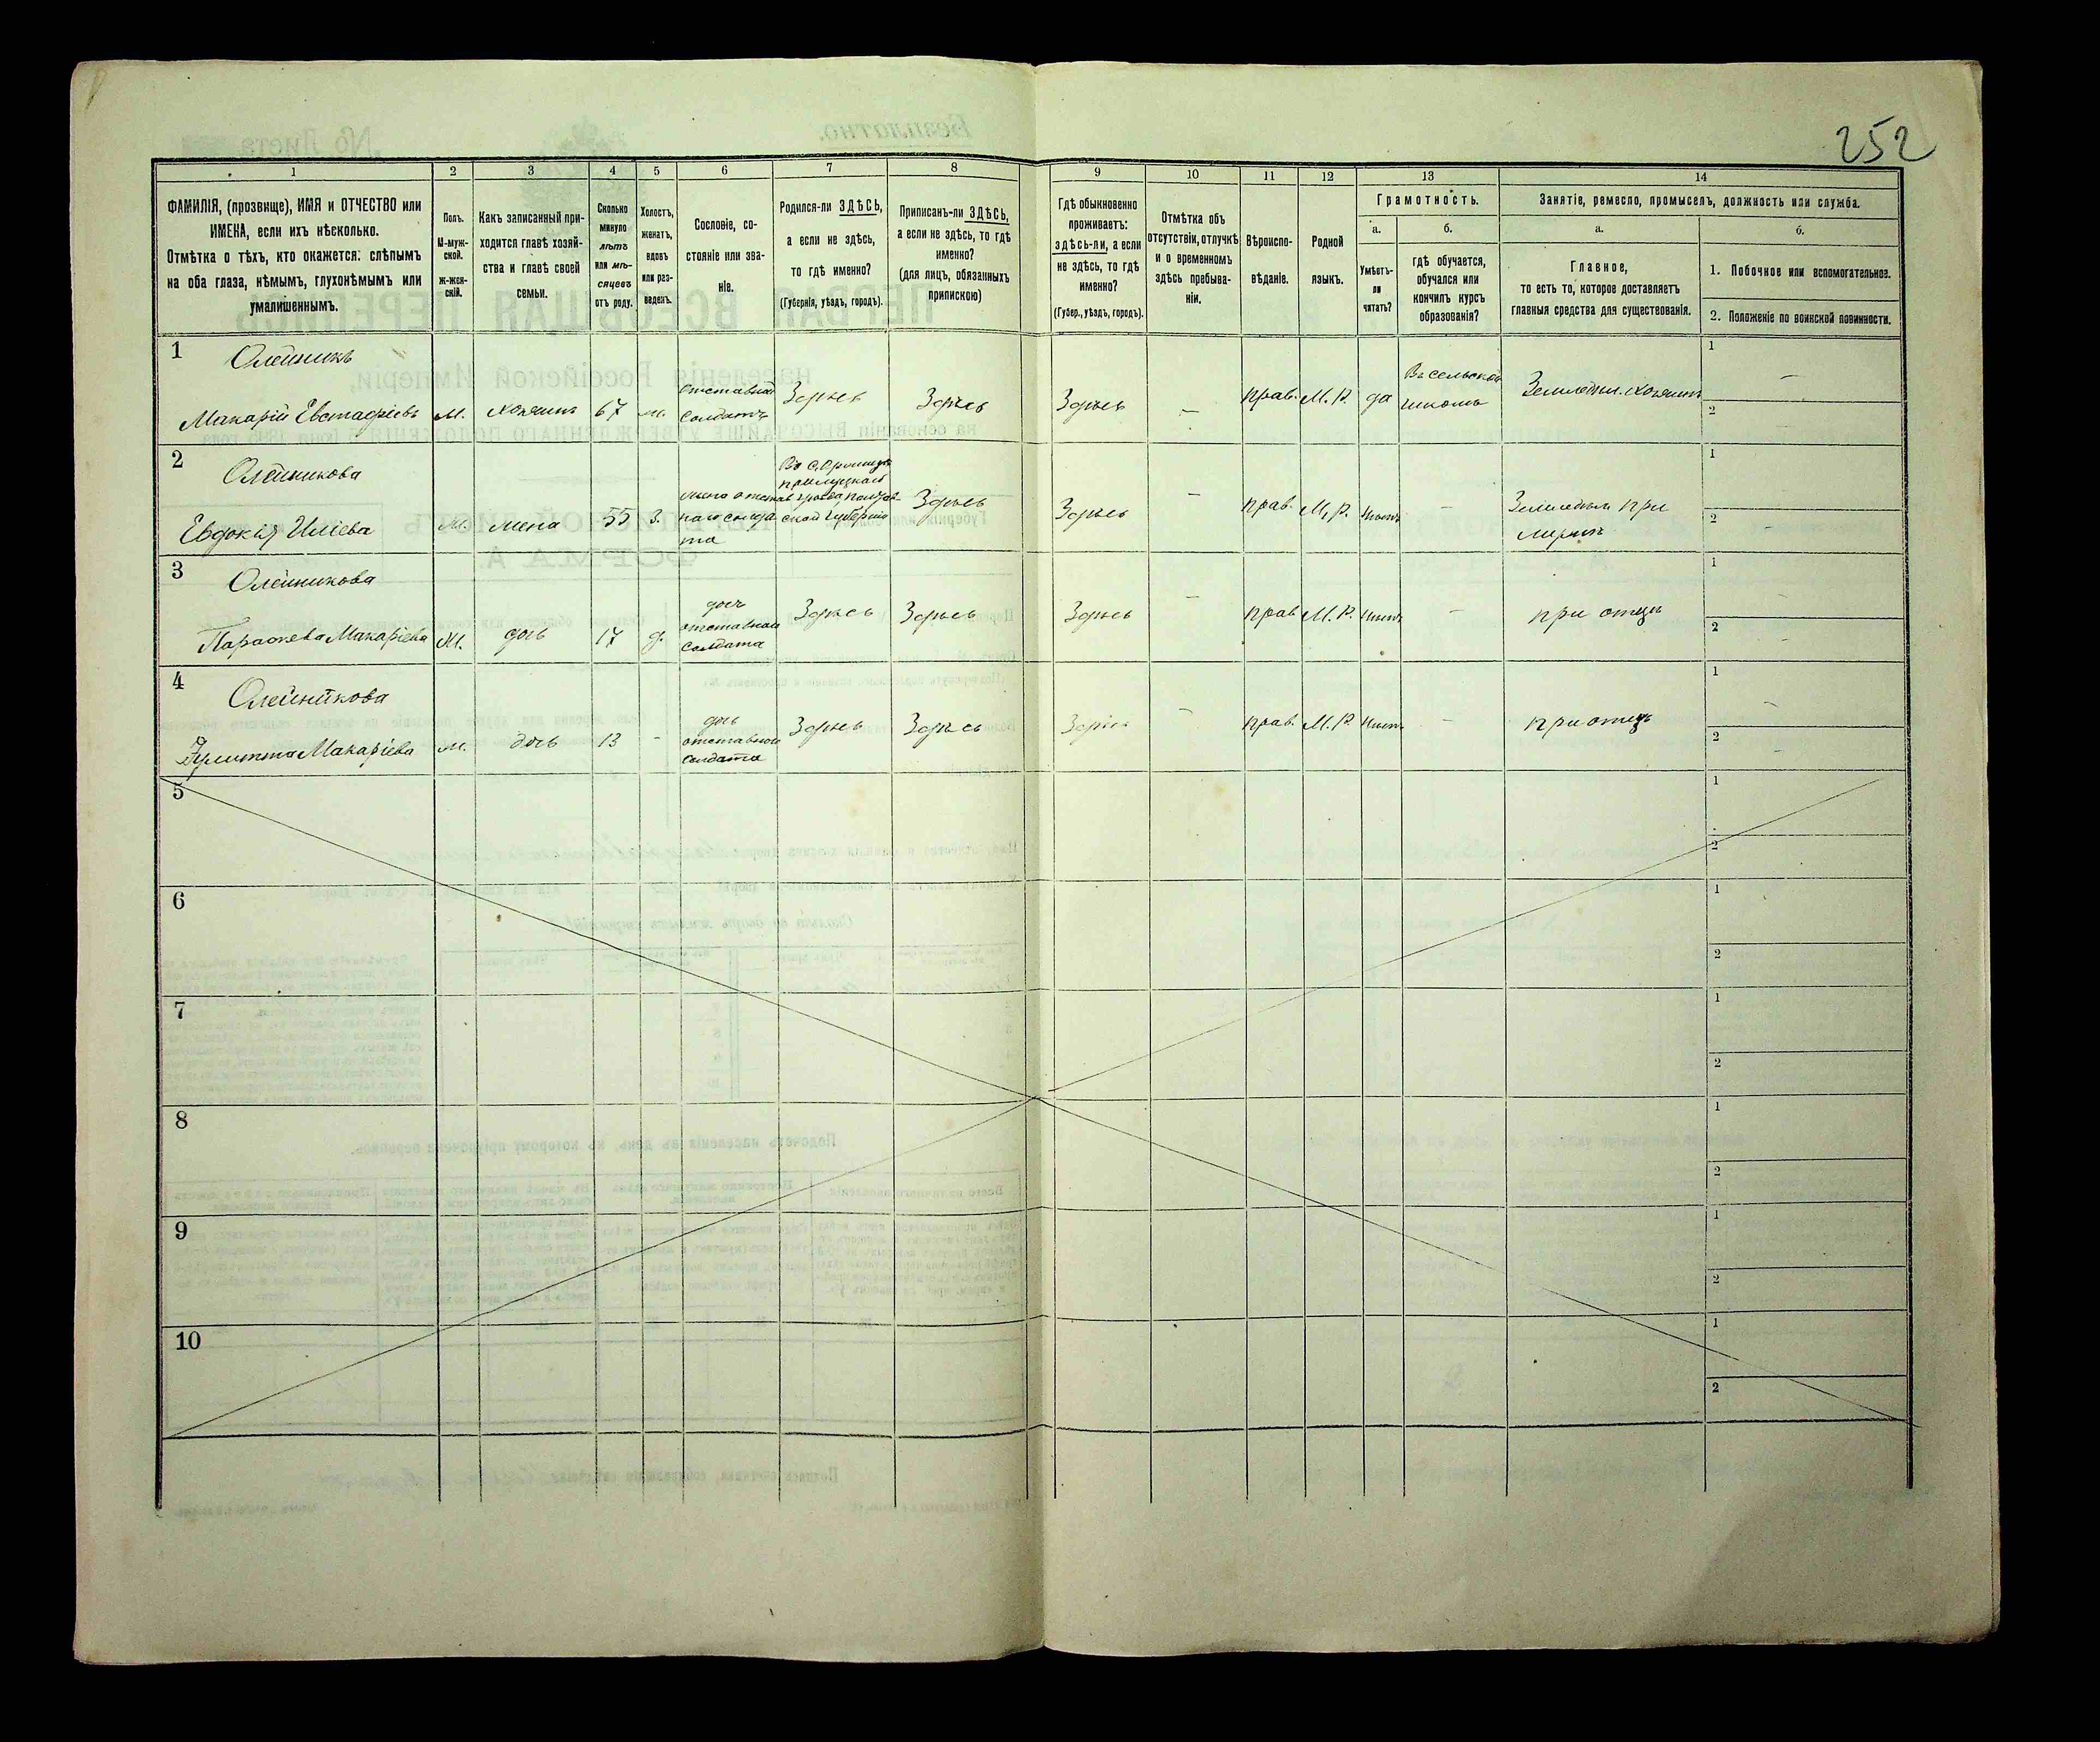 252
1 2 3 4 5 6 7 8 9 10 11 12 13 14
ФАМИЛІЯ, (прозвище), ИМЯ и ОТЧЕСТВО или
ИМЕНА, если ихъ нѣсколько.
Отмѣтка о тѣхъ, кто окажется: слѣпымъ
на оба глаза, нѣмымъ, глухонѣмымъ или
умалишеннымъ.
Полъ.
М-муж-
ской.
ж-жен-
скій.
Какъ записанный при-
ходится главѣ хозяй-
ства и главѣ своей
семьи.
Сколько
минуло
лѣтъ
или мѣ-
сяцевъ
отъ роду.
Холостъ,
женатъ,
вдовъ
или раз-
веденъ.
Сословіе, со-
стояніе или зва-
ніе.
Родился-ли ЗДѢСЬ,
а если не здѣсь,
то гдѣ именно?
(Губернія, уѣздъ, городъ).
Приписанъ-ли ЗДѢСЬ,
а если не здѣсь, то гдѣ
именно?
(для лицъ, обязанныхъ
припискою)
Гдѣ обыкновенно
проживаетъ:
здѣсь-ли, а если
не здѣсь, то гдѣ
именно?
(Губер., уѣздъ, городъ).
Отмѣтка объ
отсутствіи, отлучкѣ
и о временномъ
здѣсь пребыва-
ніи.
Вѣроиспо-
вѣданіе.
Родной
языкъ.
Грамотность.
а.
Умѣетъ-
ли
читать?
б.
гдѣ обучается,
обучался или
кончилъ курсъ
образованія?
Занятіе, ремесло, промыселъ, должность или служба.
а.
Главное,
то есть то, которое доставляетъ
главныя средства для существованія.
б.
1. Побочное или вспомогательное.
2. Положеніе по воинской повинности.
1
Олейникъ
Макарій Евстафіевъ
м.
хозяинъ
67
ж.
отставной
солдатъ
Здѣсь
Здѣсь
Здѣсь
—
прав.
М. Р.
да
Въ сельской
школѣ
Земледѣл. хозяинъ
1
—
2
2
Олейникова
Евдокія Иліева
ж.
жена
55
З.
жена отстав
наго солда
та
Въ с.
прилуцкаго
уѣзда полтав-
ской губерніи
Здѣсь
Здѣсь
—
прав.
М. Р.
нѣтъ
—
Земледѣл. при
мужѣ
1
2
3
Олейникова
Параскева Макаріева
ж.
дочь
17
д.
дочь
отставного
солдата
Здѣсь
Здѣсь
Здѣсь
—
прав
М. Р.
нѣтъ
—
при отцѣ
1
2
4
Олейникова
Улитта Макаріева
ж.
дочь
13
-
дочь
отставного
солдата
Здѣсь
Здѣсь
Здѣсь
—
прав.
М. Р.
нѣтъ
—
при отцѣ
1
2
5
1
2
6
1
2
7
1
2
8
1
2
9
1
2
10
1
2